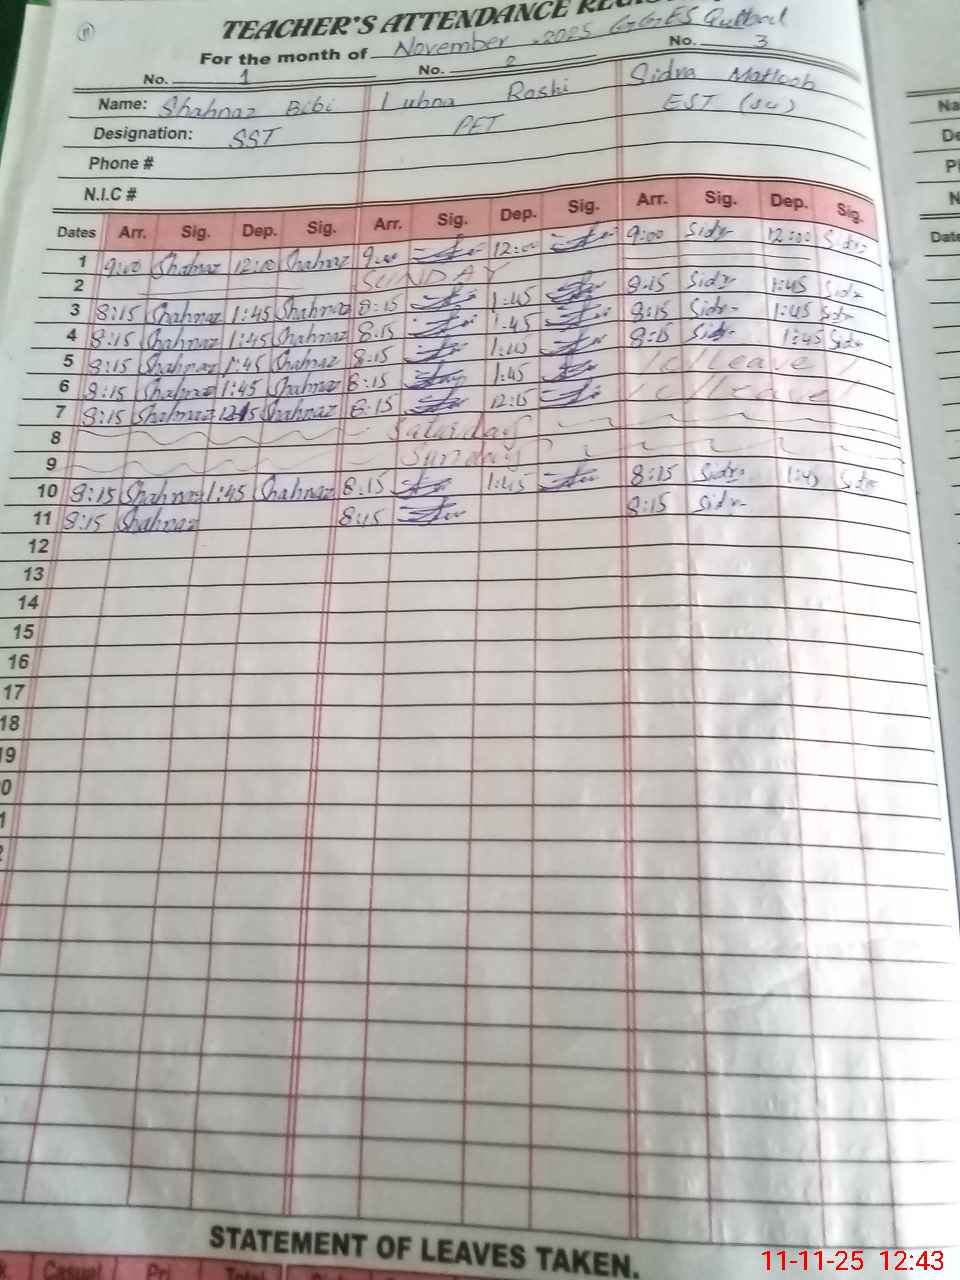 TEACHER'S ATTENDANCE
For the month of November 2025 GGES
No. 1 No. 2 No. 3
Name: Shahnaz Bibi Lubna Roshi Sidra Matloob
Designation: SST PET EST (Sc)
Phone #
N.I.C #
Dates Arr. Sig. Dep. Sig. Arr. Sig. Dep. Sig. Arr. Sig. Dep. Sig.
1 9:00 Shahnaz 12:00 Shahnaz 9:00 12:00 9:00 Sidra 12:00 Sidra
2 SUNDAY
3 8:15 Shahnaz 1:45 Shahnaz 8:15 1:45 8:15 Sidra 1:45 Sidra
4 8:15 Shahnaz 1:45 Shahnaz 8:15 1:45 8:15 Sidra 1:45 Sidra
5 8:15 Shahnaz 1:45 Shahnaz 8:15 1:45 8:15 Sidra 1:45 Sidra
6 8:15 Shahnaz 1:45 Shahnaz 8:15 1:45 C/Leave
7 8:15 Shahnaz 12:15 Shahnaz 8:15 12:15 C/Leave
8 Saturday
9 Sunday
10 8:15 Shahnaz 1:45 Shahnaz 8:15 1:45 8:15 Sidra 1:45 Sidra
11 8:15 Shahnaz 8:15 8:15 Sidra
12
13
14
15
16
17
18
19
STATEMENT OF LEAVES TAKEN.
Casual Pri. Total
11-11-25 12:43